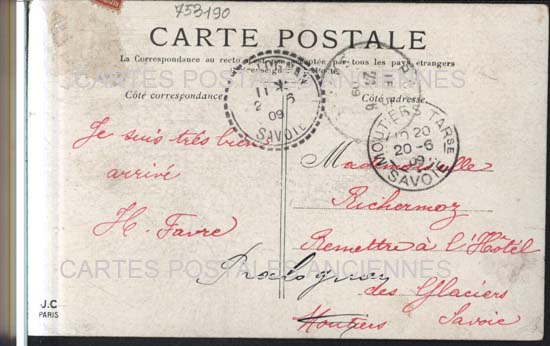 753190
CARTE POSTALE
La Correspondance au recto
par tous les pays étrangers
Côté correspondance
Côté adresse
SAVOIE
11
2 6
09
MOUTIERS TARSE
10 20
20-6
09
SAVOIE
Je suis très bien
arrivé
H. Favre
Mademoiselle
Richermoz
Remettre à l'Hôtel
des Glaciers
Pralognan
Moutiers Savoie
CARTES POSTALES ANCIENNES
CARTES POSTALES ANCIENNES
J.C
PARIS